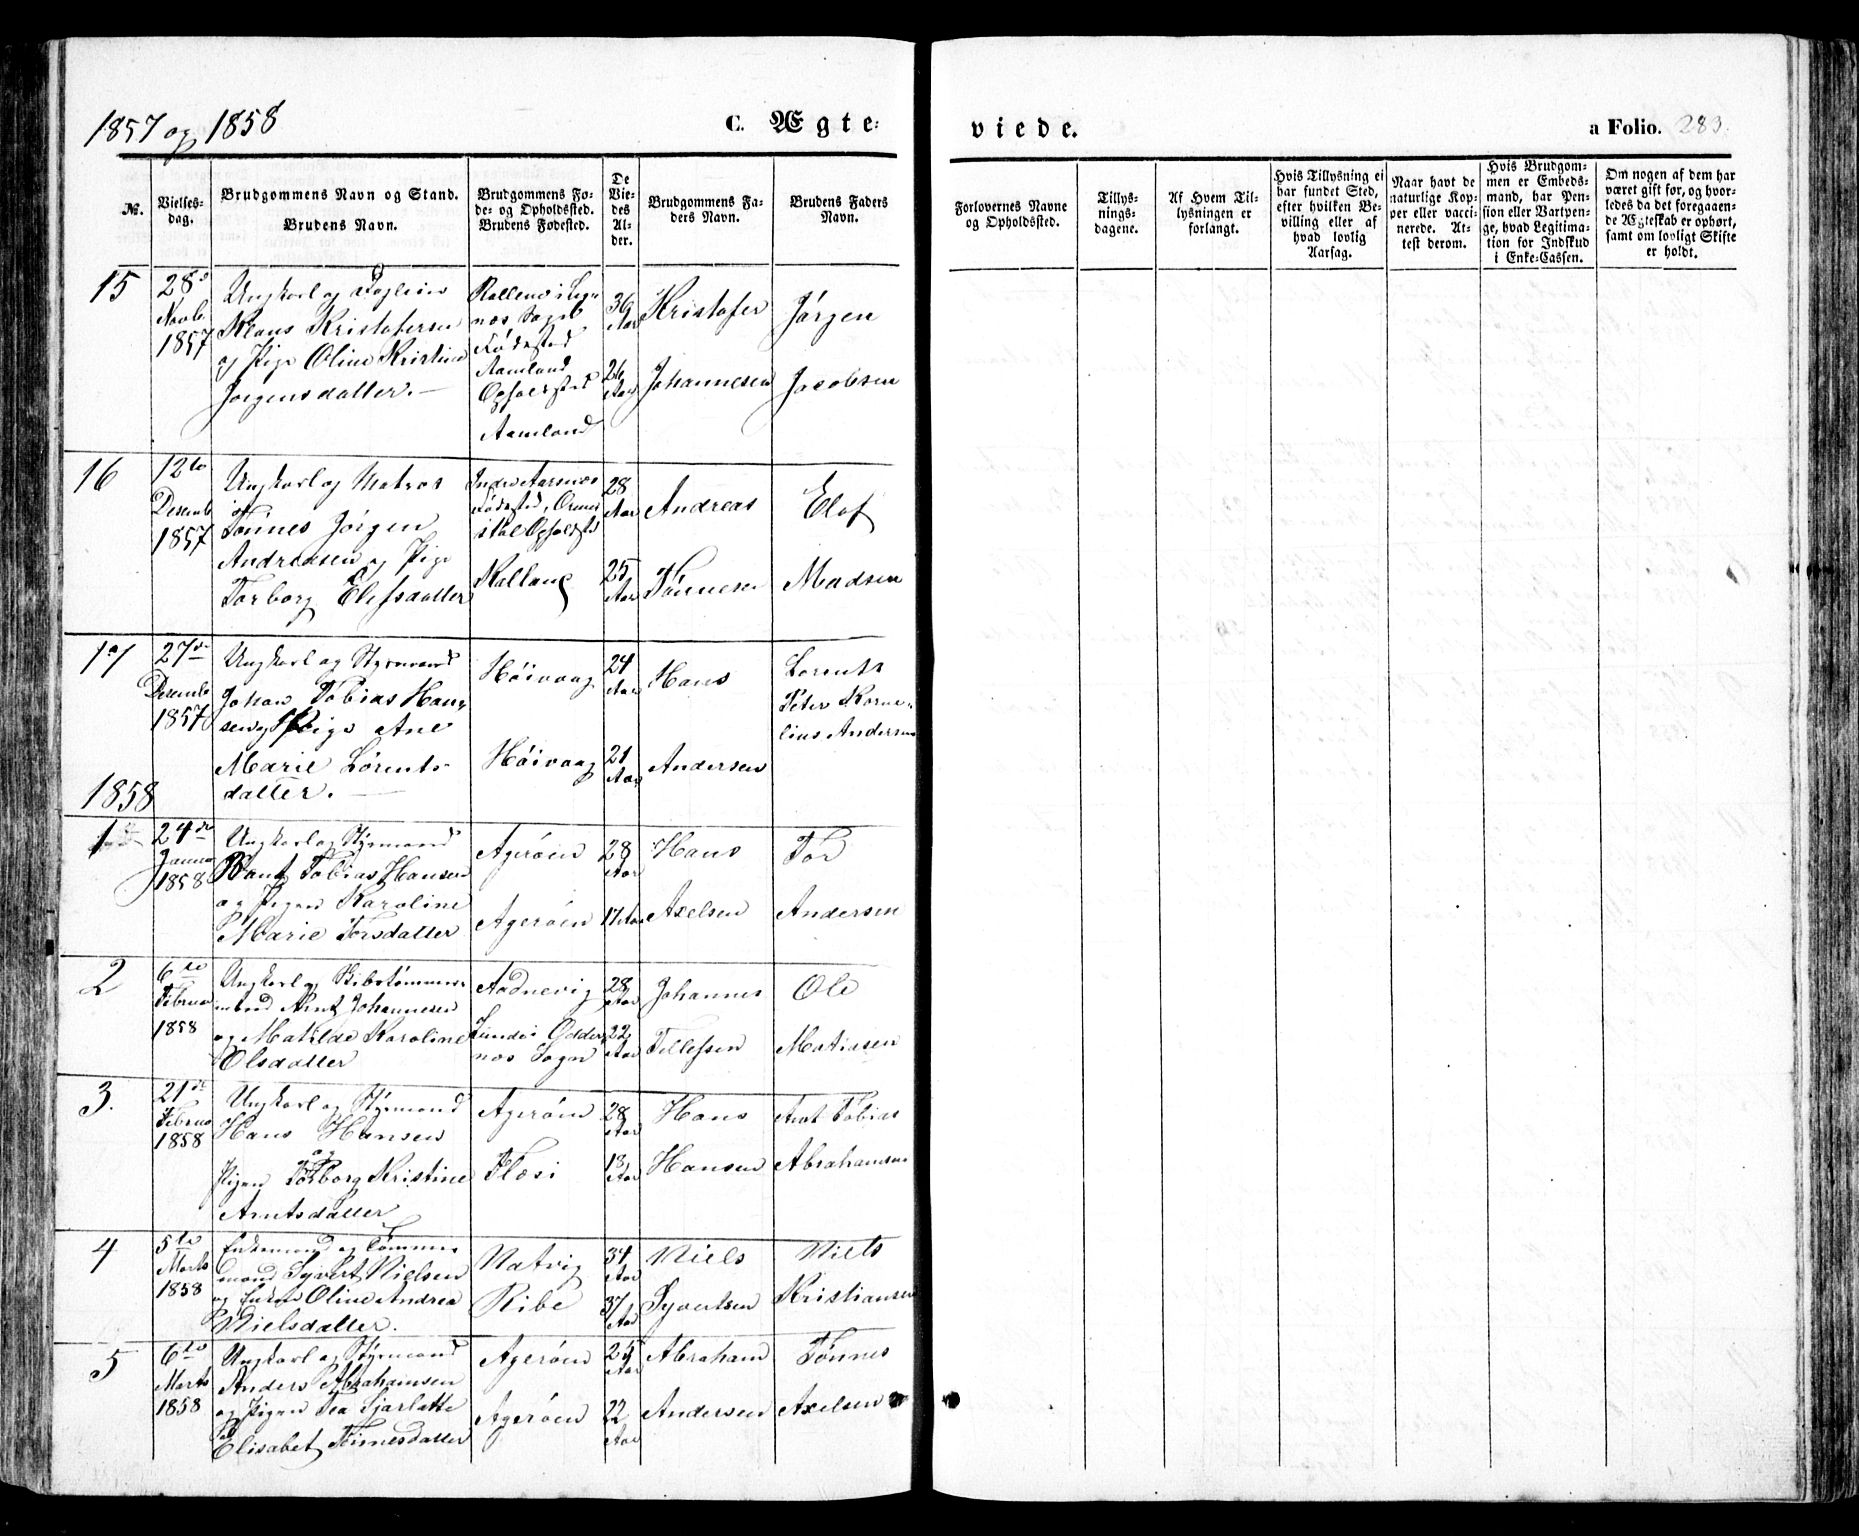 1857 og 1858
C. Ægte-
viede.
a Folio. 283.
№.
Vielses-
dag.
Brudgommens Navn og Stand.
Brudens Navn.
Brudgommens Fø-
de- og Opholdssted.
Brudens Fødested.
De
Vie-
des
Al-
der.
Brudgommens Fa-
ders Navn.
Brudens Faders
Navn.
Forlovernes Navne
og Opholdssted.
Tillys-
nings-
dagene.
Af Hvem Til-
lysningen er
forlangt.
Hvis Tillysning ei
har fundet Sted,
efter hvilken Be-
villing eller af
hvad lovlig
Aarsag.
Naar havt de
naturlige Kop-
per eller vacci-
nerede. At-
test derom.
Hvis Brudgom-
men er Embeds-
mand, har Pen-
sion eller Vartpen-
ge, hvad Legitima-
tion for Indskud
i Enke-Cassen.
Om nogen af dem har
været gift før, og hvor-
ledes da det foregaaen-
de Ægteskab er ophørt,
samt om lovligt Skifte
er holdt.
15
28de
Novb
1857
Ungkarl og
Klaus Kristofersen
og Pige Oline Kristine
Jørgensdatter. —
Sogn
Fødested
Aamland
Opholdssted
Aamland
36
Aar
26
Aar
Kristofer
Johannesen
Jørgen
Jacobsen
16
12te
Desemb
1857
Ungkarl og Matros
Tønnes Jørgen
Andreasen og Pige
Torborg Elefsdatter
Indre Aarsnes
Fødested,
Opholdsts
Kalland
28
Aar
25
Aar
Andreas
Tønnesen
Elof
Madsen
17
27de
Desemb
1857
Ungkarl og Styrmand
Johan Tobias Han-
sen og Pige Ane
Marie Lørents-
datter. —
Høivaag
Høivaag
24
Aar
21
Aar
Hans
Andersen
Lorents
Peter Korne-
lius Andersen
1858
1
24de
Januar
1858
Ungkarl og Styrmand
Bent Tobias Hansen
og Pigen Karoline
Marie Torsdatter
Agerøen
Agerøen
28
Aar
17 Aar
Hans
Axelsen
Tor
Andersen
2
6te
Februar
1858
Ungkarl og Skibstømmer-
mand Arnt Johannesen
og Matilde Karoline
Olsdatter
Aadnevig
Lunde i Odder-
nes Sogn
28
Aar
22
Aar
Johannes
Tellefsen
Ole
Matiasen
3.
21de
Februar
1858
Ungkarl og Styrmand
Hans Hansen
og
Pigen Torborg Kristine
Arntsdatter
Agerøen
Flesi
28
Aar
18
Aar
Hans
Hansen
Arnt Tobias
Abrahamsen
4
5te
Marts
1858
Enkemand og Tømmer-
mand Syvert Nielsen
og Enken Oline Andrea
Nielsdatter.
Natvig
Ribe
34
Aar
37
Aar
Niels
Syvertsen
Niels
Kristiansen
5
6te
Marts
1858
Ungkarl og Styrmand
Anders Abrahamsen
og Pigen Tea Sjarlotte
Elisabet Tønnesdatter
Agerøen
Agerøen
25
Aar
22
Aar
Abraham
Andersen
Tønnes
Axelsen